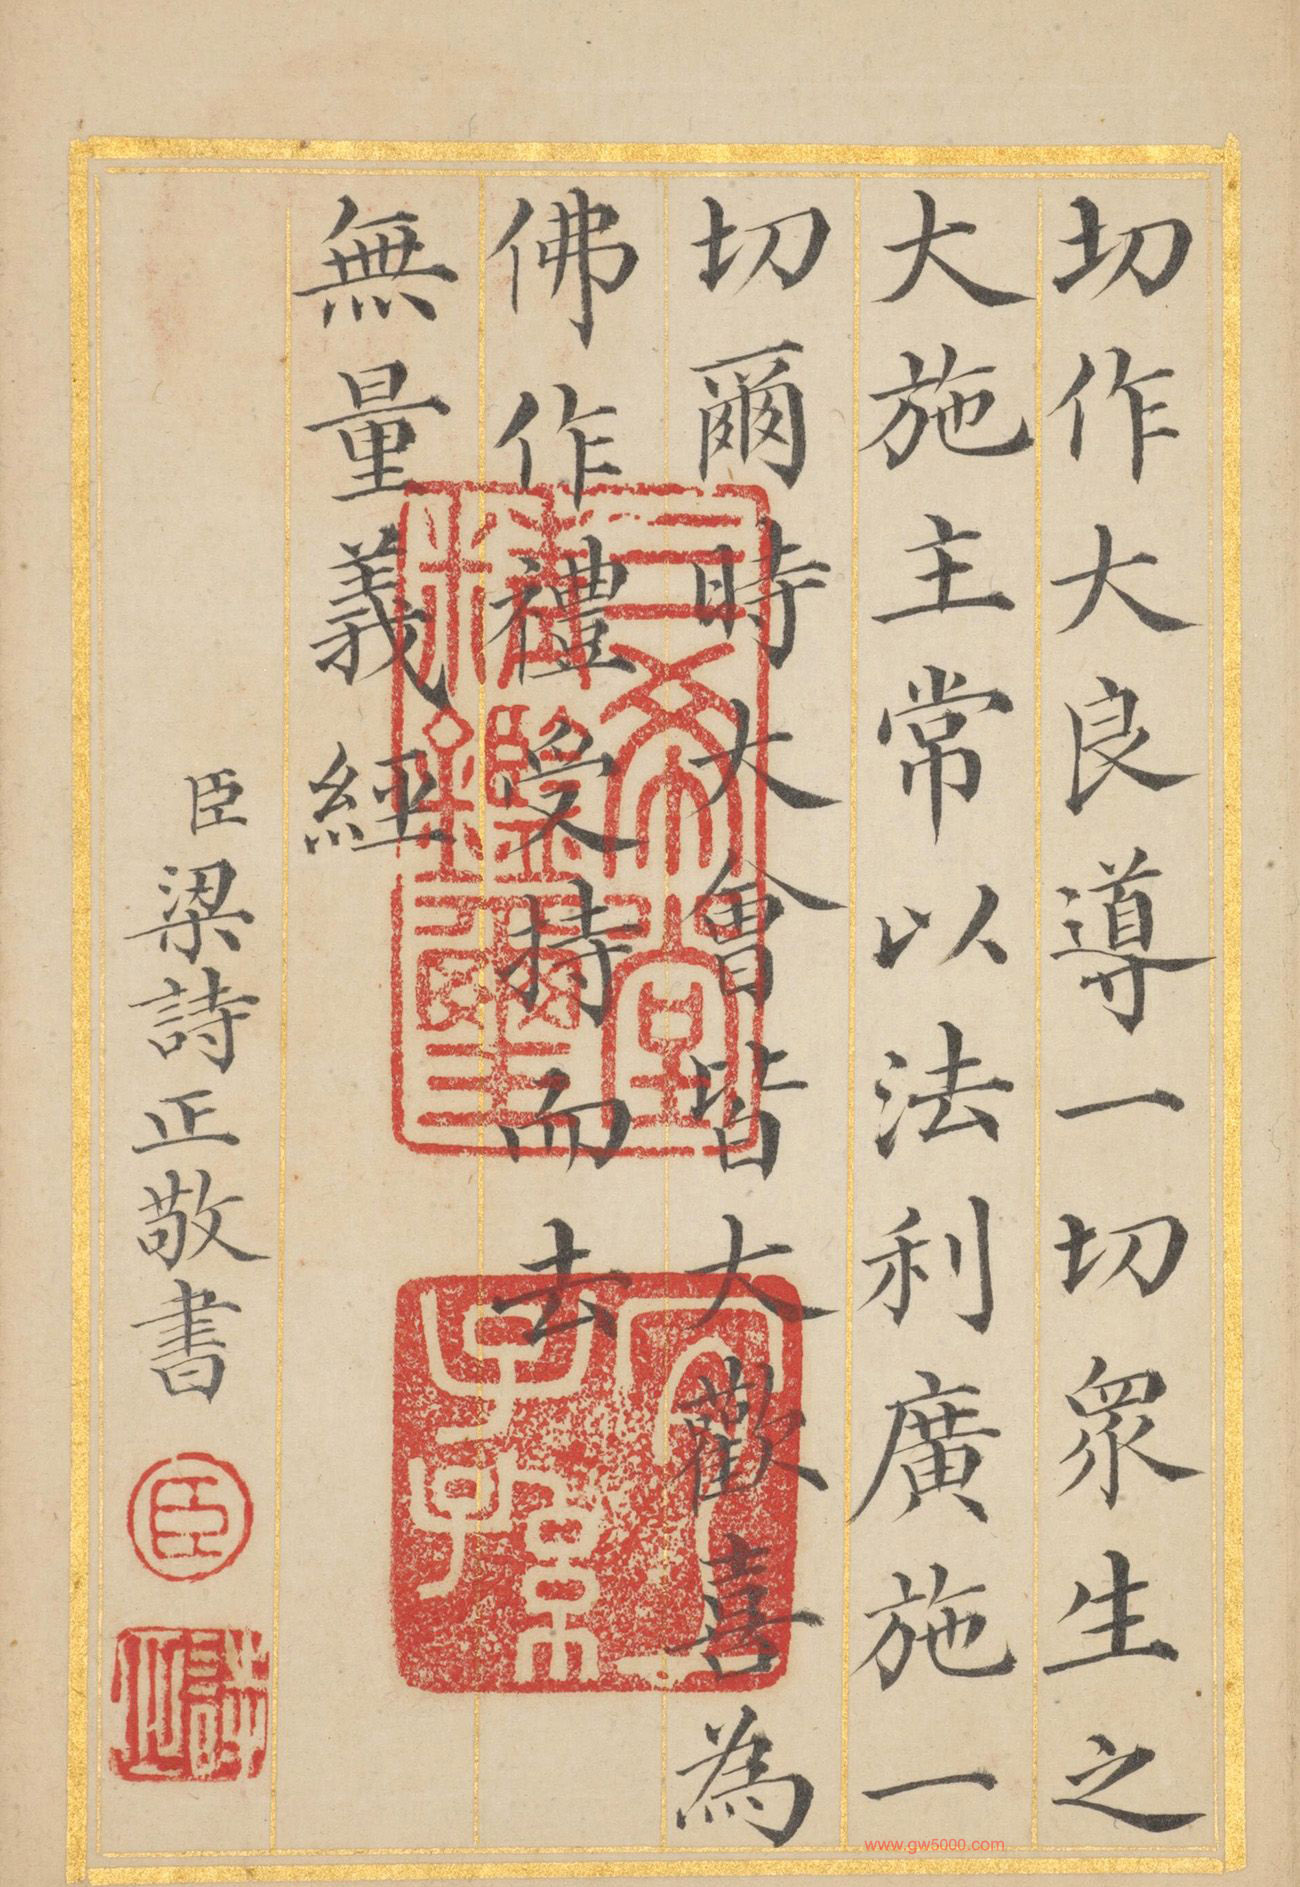 切作大良導一切眾生之
大施主常以法利廣施一
切爾時大會皆大歡喜為
佛作禮受持而去
無量義經
臣梁詩正敬書
臣
詩正
三希堂
精鑑璽
宜
子孫
www.gw5000.com